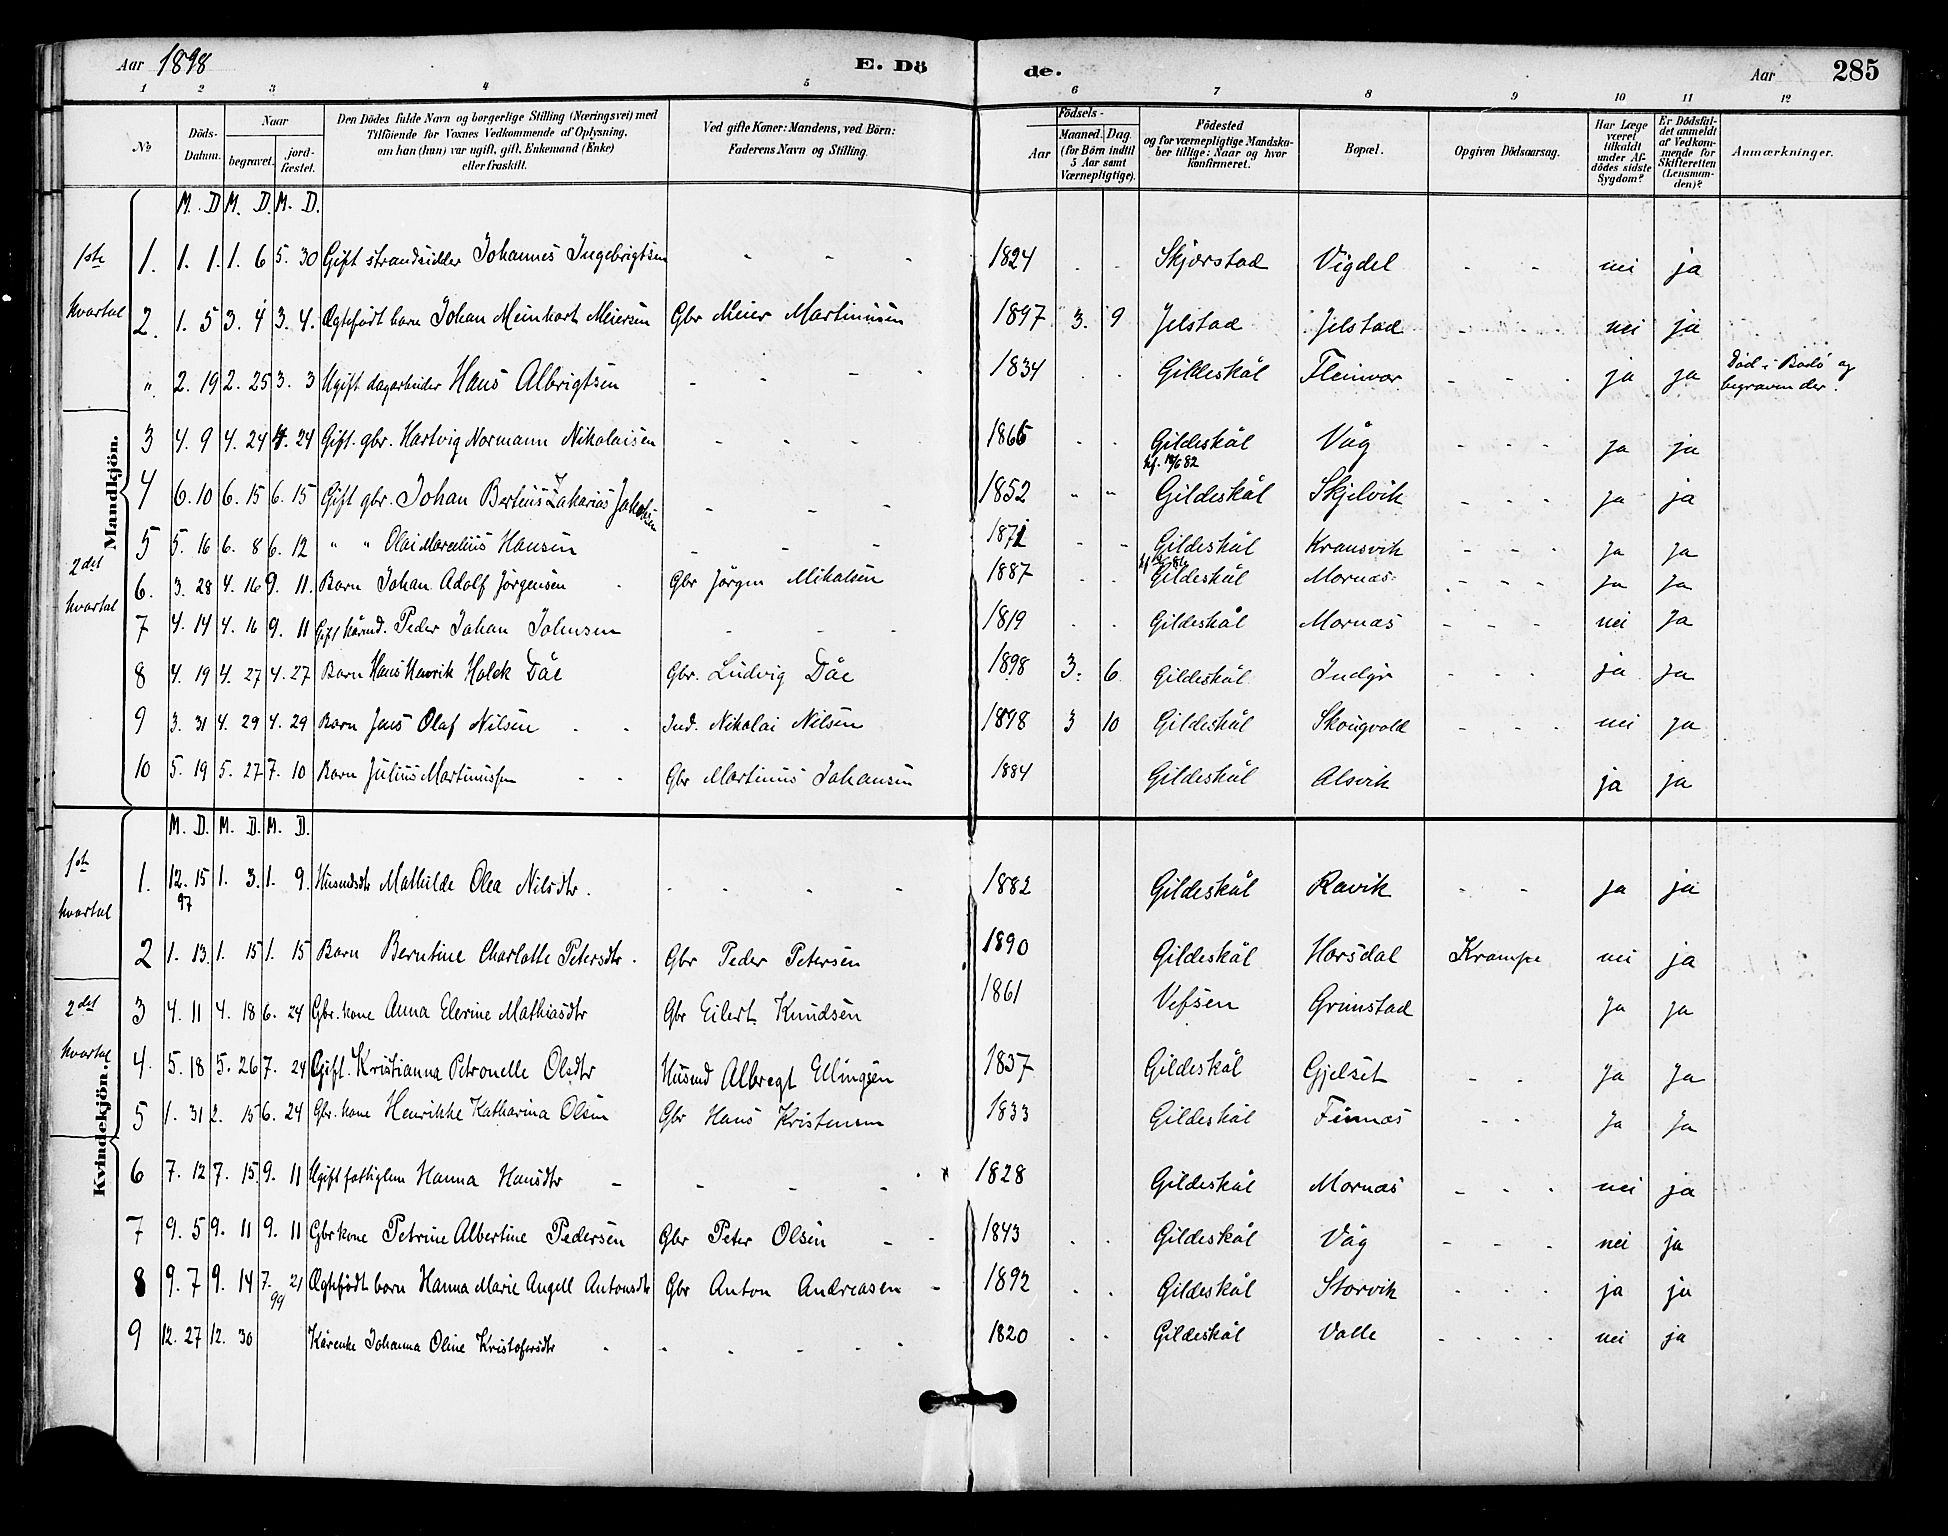 Aar 1898 E. Döde. Aar 285
1 2 3 4 5 6 7 8 9 10 11 12
No
Döds-Datum.
Naar begravet. jordfæstet.
Den Dödes fulde Navn og borgerlige Stilling (Næringsvei) med Tilföiende for Voxnes Vedkommende af Oplysning, om han (hun) var ugift, gift, Enkemand (Enke) eller fraskilt.
Ved gifte Koner: Mandens, ved Börn: Faderens Navn og Stilling.
Födsels- Aar Maaned. Dag. (for Börn indtil 5 Aar samt Værnepligtige).
Födested og for værnepligtige Mandskaber tillige: Naar og hvor konfirmeret.
Bopæl.
Opgiven Dödsaarsag.
Har Læge været tilkaldt under Afdödes sidste Sygdom?
Er Dödsfaldet anmeldt af Vedkommende for Skifteretten (Lensmanden)?
Anmærkninger.
Mandkjön.
M. D. M. D. M. D.
1ste kvartal
1. 1. 1. 1. 6 5. 30 Gift strandsidder Johannes Ingebrigtsen - - - 1824 . . Skjerstad Vigdel - - nei ja
2. 1. 5 3. 4 3. 4. Ægtefødt barn Johan Meinhart Meiersen Gbr Meier Martinusen 1897 3. 9 Jelstad Jelstad - - - nei ja
" 2. 19 2. 25 3. 3 Ugift dagarbeider Hans Albrigtsen - - - 1834 . . Gildeskål Fleinvær - - - ja ja Død i Bodø og begraven der.
3 4. 9 4. 24 4. 24 Gift. gbr. Hartvig Normann Nikolaisen - - - 1866 . . Gildeskål Våg - - - ja ja
2det kvartal
4 6. 10 6. 15 6. 15 Gift gbr. Johan Berteus Zakarias Jakobsen - - - 1852 - - Gildeskål Skjelvik - - - ja ja
5 5. 16 6. 8 6. 12 " " Olai Marelius Hansen - - - 1871 - - Gildeskål Kransvik - - - ja ja
6. 3. 28 4. 16 9. 11. Barn Johan Adolf Jørgensen Gbr Jørgen Mikalsen 1887 . . Gildeskål Mornæs - - - ja ja
7 4. 14 4. 16 9. 11 Gift kårmd. Peder Johan Johnsen - - - 1819 . . Gildeskål Mornæs - - - nei ja
8 4. 19 4. 27 4. 27 Barn Hans Henrik Holck Dåe Gbr. Ludvig Dåe 1898 3. 6 Gildeskål Indyr - - - ja ja
9 3. 31 4. 29 4. 29 Barn Jens Olaf Nilsen - - Ind. Nikolai Nilsen 1898 3 10 Gildeskål Skougvold - - - nei ja
10 5. 19 5. 27 7. 10 Barn Julius Martinussen - - Gbr Martinus Johansen 1884 Gildeskål Alsvik ja ja
Kvindekjön.
M. D. M. D. M. D.
1ste kvartal
1. 12. 15 97 1. 3. 1. 9. Husmdsdtr Mathilde Olea Nilsdtr. - - - - 1882 Gildeskål Ravik - - ja ja
2 1. 13. 1. 15 1. 15 Barn Berntine Charlotte Petersdtr. Gbr Peder Petersen 1890 Gildeskål Horsdal Krampe nei ja
2det kvartal
3 4. 11 4. 18 6. 24 Gbr. kone Anna Elerine Mathiasdtr Gbr Eilert Knudsen 1861 Vefsen Grimstad ja ja
4. 5. 18 5. 26 7. 24 Gift. Kristianna Petronelle Olsdtr Husmd Albregt Ellingsen 1837 Gildeskål Gjelset - - ja ja
5 1. 31 2. 15 6. 24 Gbr. kone Henrikke Katharina Olsen Gbr Hans Kristensen 1833 Gildeskål Finnæs - - ja ja
6 7. 12 7. 15. 9. 11 Ugift fattiglem Hanna Hansdtr - - - - 1828 Gildeskål Mornæs - - - nei ja
7 9. 5 9. 11 9. 11 Gbrkone Petrine Albertine Pedersen Gbr Peter Olsen - - 1843 . . Gildeskål Våg - - - nei ja
8 9. 7 9. 14 7. 21 99 Ægtefødt barn Hanna Marie Angell Antonsdtr Gbr Anton Andreasen - 1892 . . Gildeskål Storvik - - - ja ja
9 12. 27 12. 30 Kårenke Johanna Oline Kristofersdtr - - - - - 1820 . . Gildeskål Valle - - - - nei ja